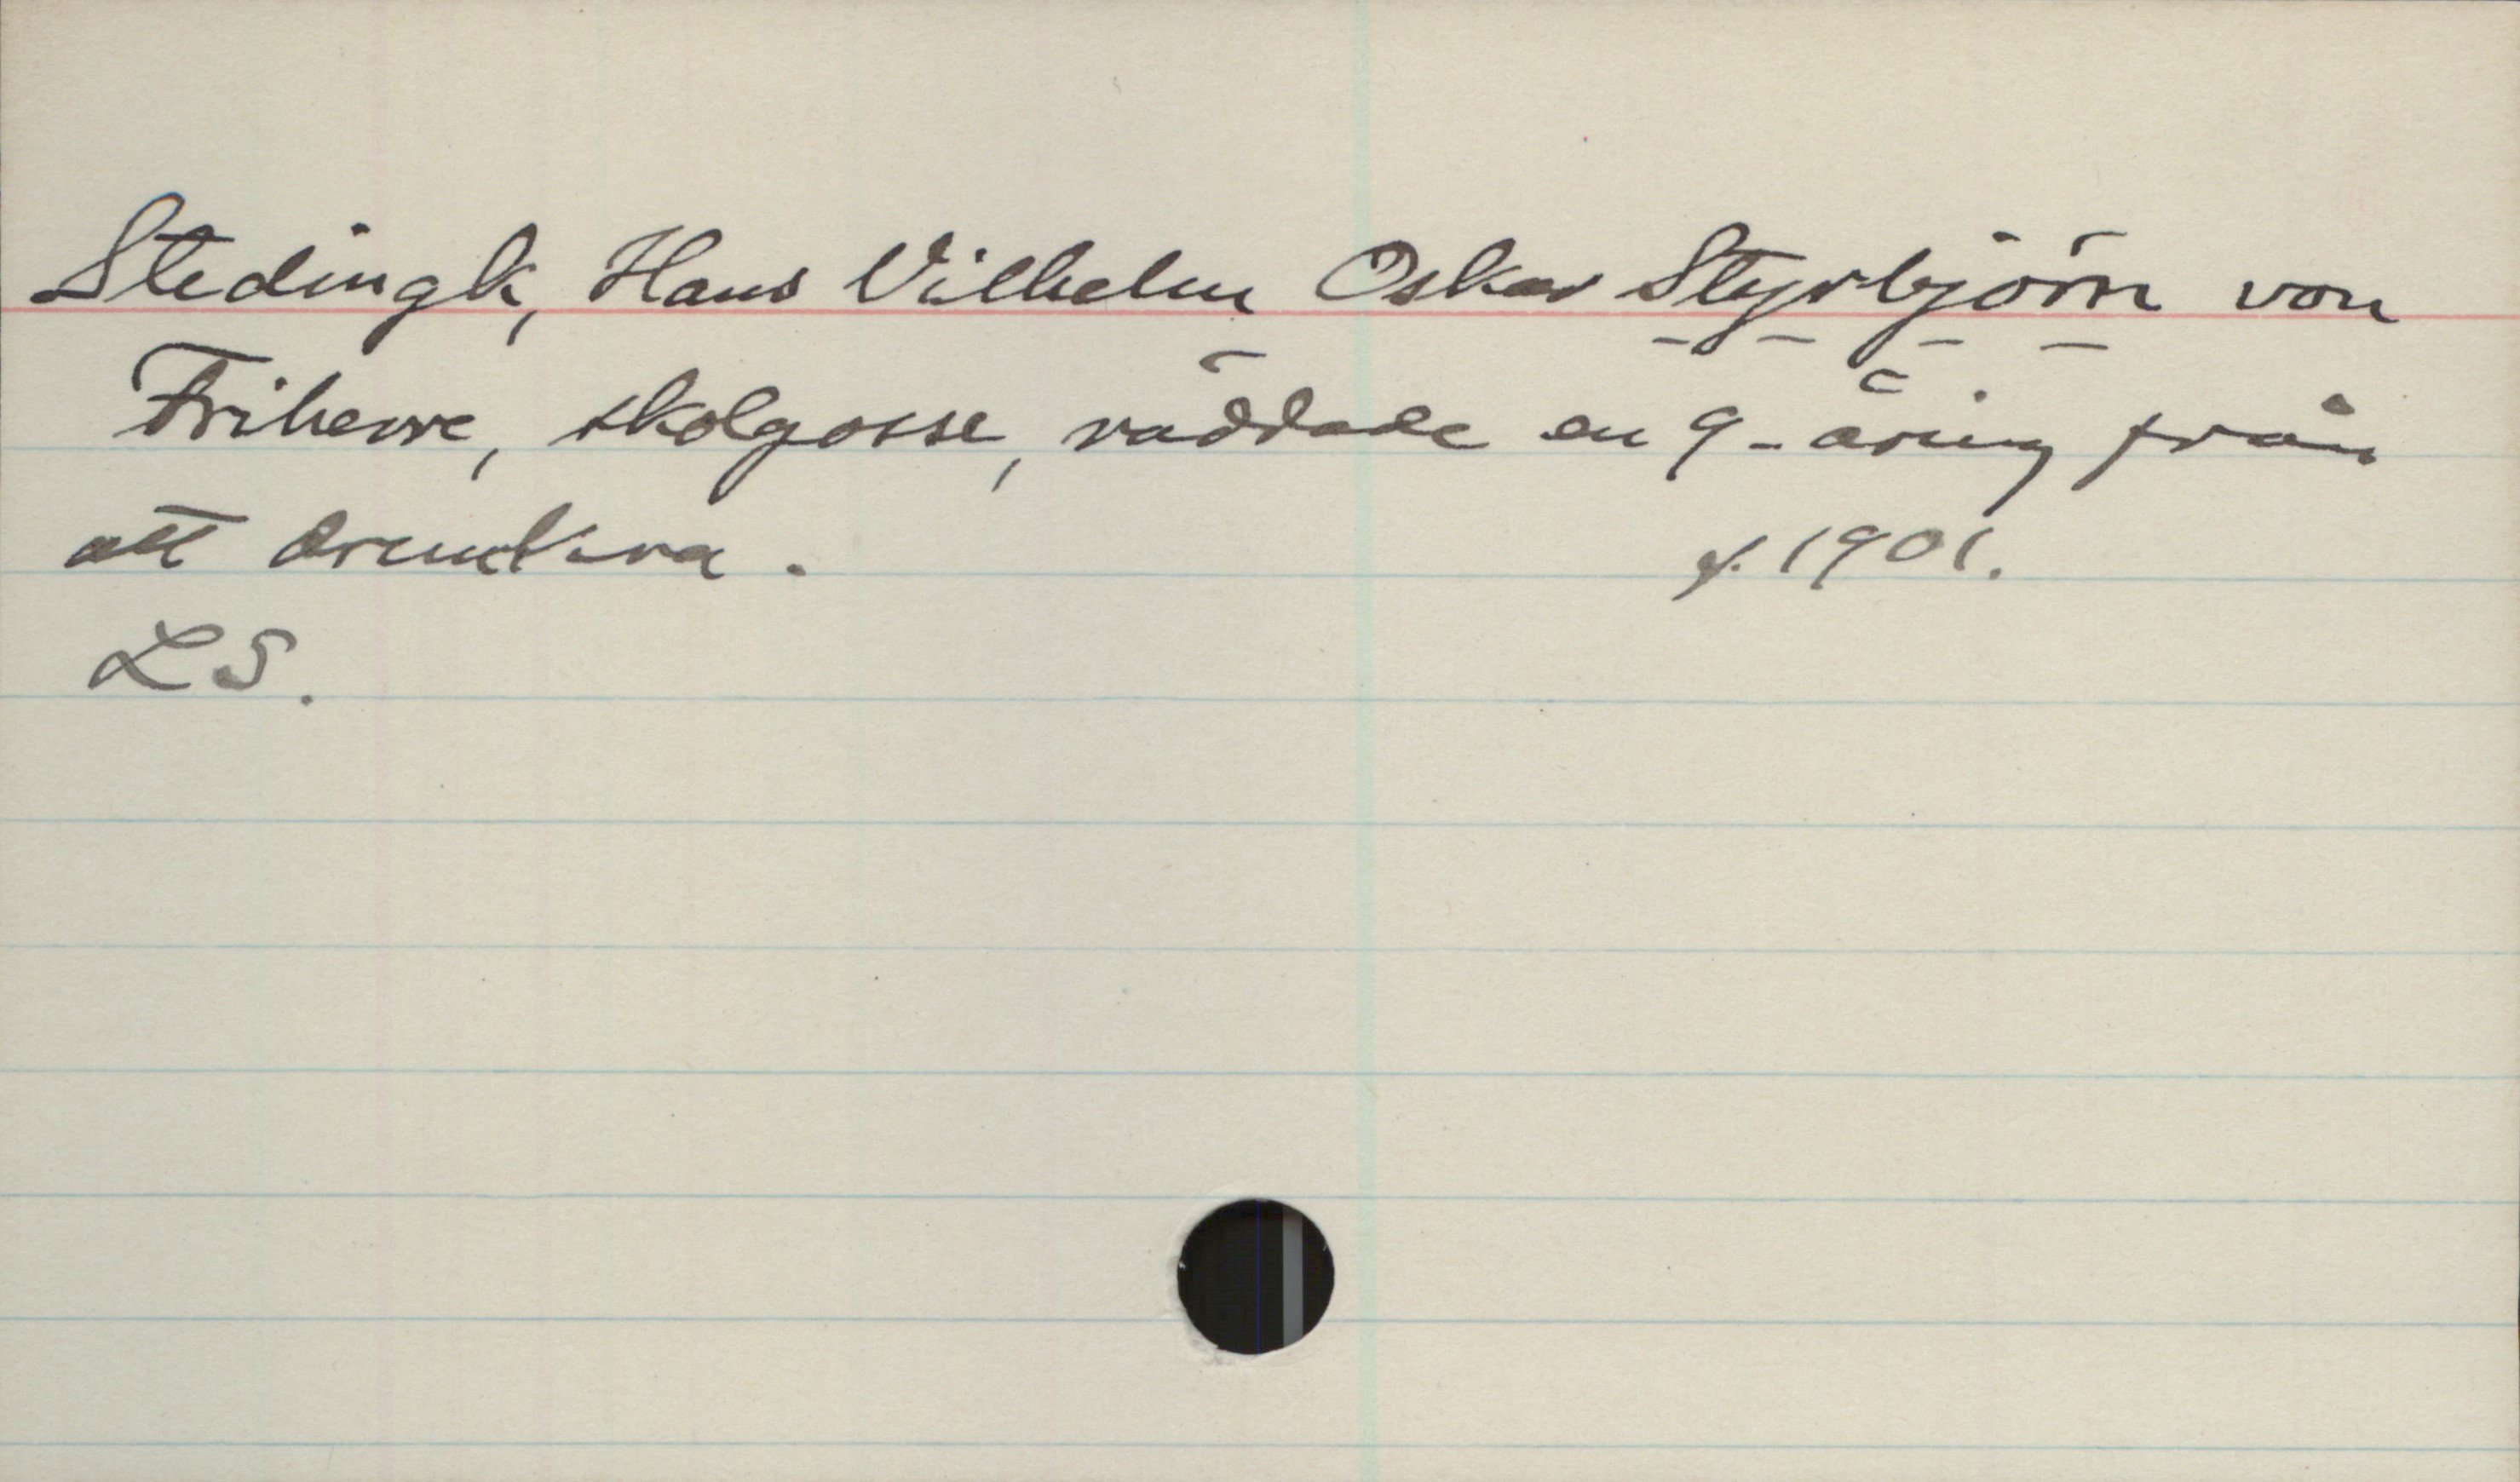 Stedingk, Hans Vilhelm Oskar Styrbjörn von
Friherre, skolgosse, räddade en 9-åring från
att drunkna. f. 1901.
LS.